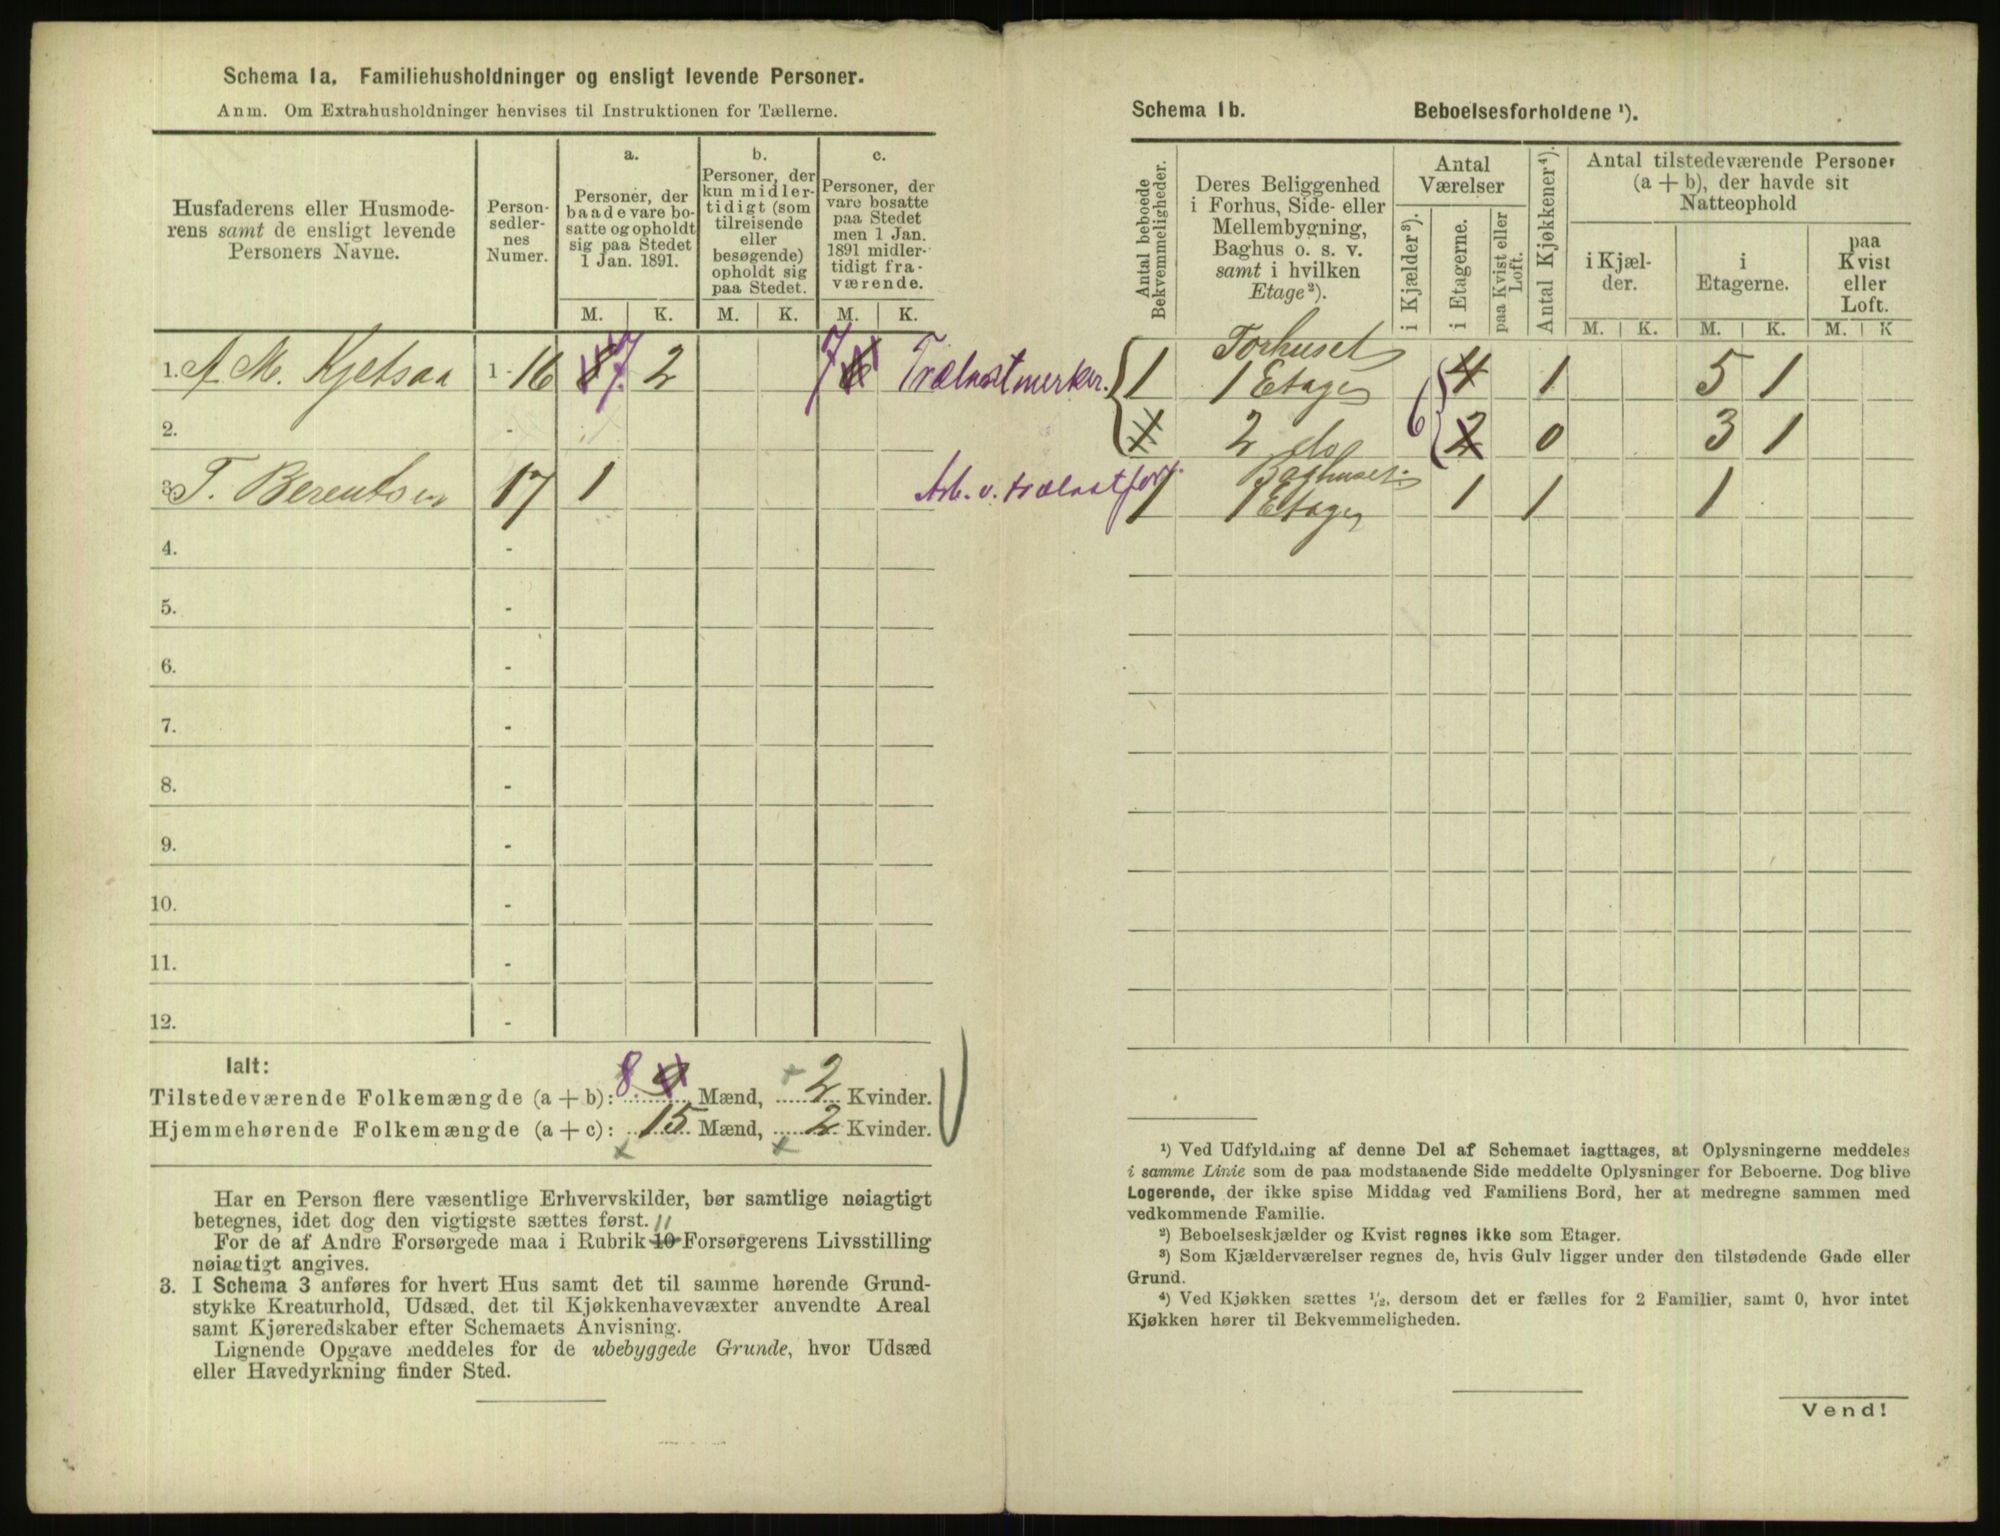 Schema 1a. Familiehusholdninger og ensligt levende Personer.
Anm. Om Extrahusholdninger henvises til Instruktionen for Tællerne.
Husfaderens eller Husmode-
rens samt de ensligt levende
Personers Navne.
Person-
sedler-
nes
Numer.
a.
Personer, der
baade vare bo-
satte og opholdt
sig paa Stedet
1 Jan. 1891.
b.
Personer, der
kun midler-
tidigt (som
tilreisende
eller
besøgende)
opholdt sig
paa Stedet.
c.
Personer, der
vare bosatte
paa Stedet
men 1 Jan.
1891 midler-
tidigt fra-
værende.
M. K. M. K. M. K.
1. A. M. Kjetsaa 1-16 8 7. 2 7 6 Trælastmerker.
2. -
3. T. Berentsen 17 1 Arb. v. trælastforr.
4. -
5. -
6. -
7. -
8. -
9. -
10. -
11. -
12. -
Ialt:
Tilstedeværende Folkemængde (a + b): 8. 9 Mænd, 2 Kvinder.
Hjemmehørende Folkemængde (a + c): 15 Mænd, 2 Kvinder.
Har en Person flere væsentlige Erhvervskilder, bør samtlige nøiagtigt
betegnes, idet dog den vigtigste sættes først.
11
For de af Andre Forsørgede maa i Rubrik 10 Forsørgerens Livsstilling
nøiagtigt angives.
3. I Schema 3 anføres for hvert Hus samt det til samme hørende Grund-
stykke Kreaturhold, Udsæd, det til Kjøkkenhavevæxter anvendte Areal
samt Kjøreredskaber efter Schemaets Anvisning.
Lignende Opgave meddeles for de ubebyggede Grunde, hvor Udsæd
eller Havedyrkning finder Sted.
Schema 1b. Beboelsesforholdene ¹).
Antal beboede
Bekvemmeligheder.
Deres Beliggenhed
i Forhus, Side- eller
Mellembygning,
Baghus o. s. v.
samt i hvilken
Etage²).
Antal
Værelser
i Kjælder³).
i Etagerne.
paa Kvist eller
Loft.
Antal Kjøkkener⁴).
Antal tilstedeværende Personer
(a + b), der havde sit
Natteophold
i Kjæl-
der.
i
Etagerne.
paa
Kvist
eller
Loft.
M. K. M. K. M. K
Forhuset
1 1 Etage 4 1 5 1
1 2 do 6 2 0 3 1
Baghuset
1 1 Etage 1 1 1
¹) Ved Udfyldning af denne Del af Schemaet iagttages, at Oplysningerne meddeles
i samme Linie som de paa modstaaende Side meddelte Oplysninger for Beboerne. Dog blive
Logerende, der ikke spise Middag ved Familiens Bord, her at medregne sammen med
vedkommende Familie.
²) Beboelseskjælder og Kvist regnes ikke som Etager.
³) Som Kjælderværelser regnes de, hvis Gulv ligger under den tilstødende Gade eller
Grund.
⁴) Ved Kjøkken sættes ½, dersom det er fælles for 2 Familier, samt 0, hvor intet
Kjøkken hører til Bekvemmeligheden.
Vend!